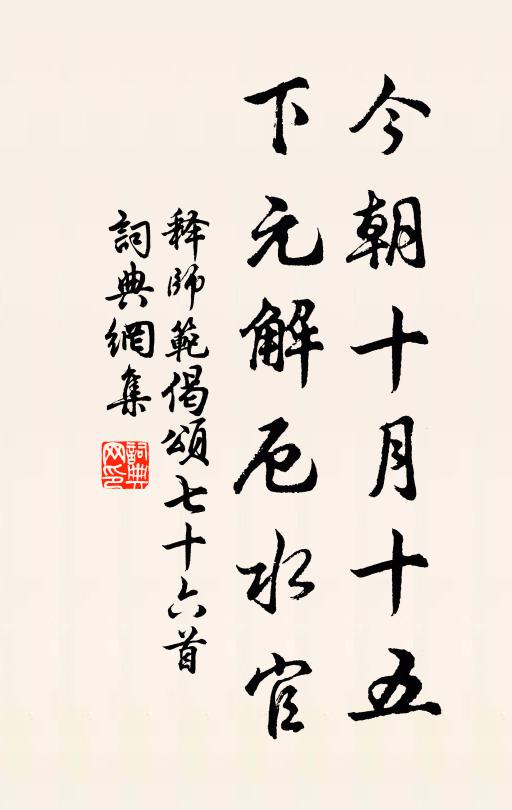 今朝十月十五
下元解厄水官
释師範偈頌七十六首
詞典網集
詞典網印